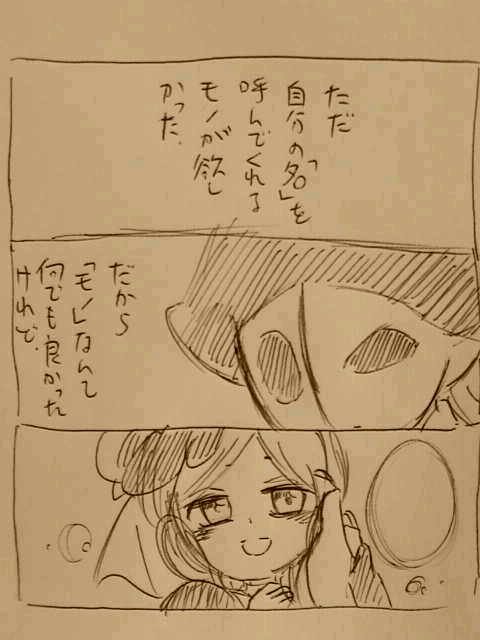 ただ
自分の「名」を
呼んでくれる
モノが欲し
かった.
だから
「モノ」なんて
何でも良かった
けれど.